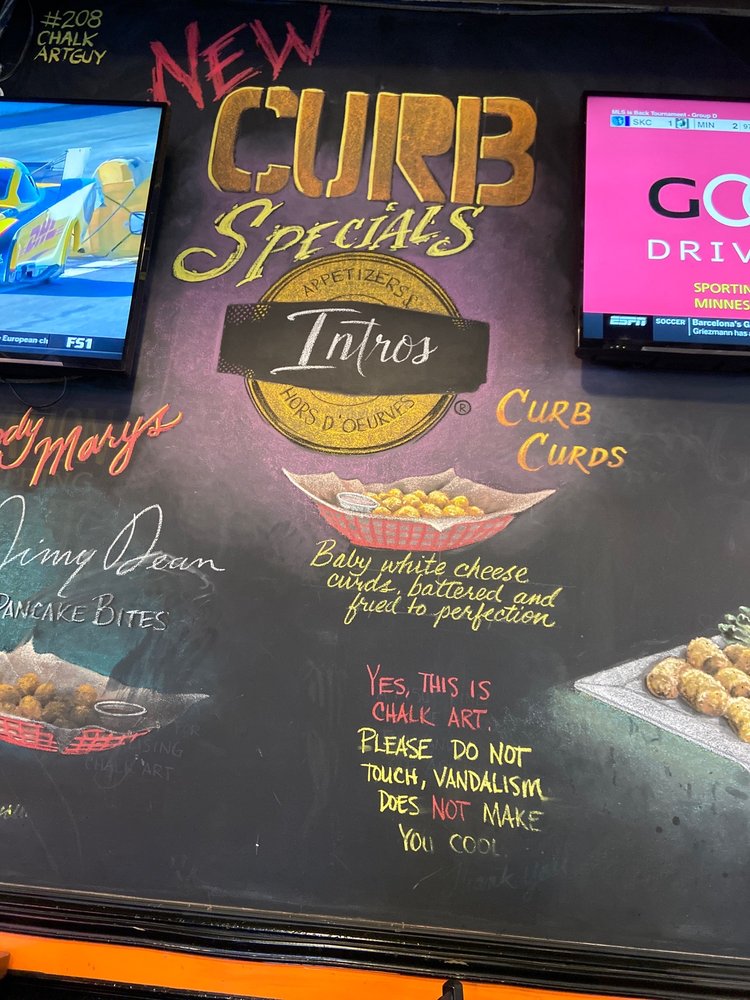 #208
CHALK
ARTGUY
NEW
CURB
SPECIALS
APPETIZERS
Intros
HORS D'OEURVES
®
CURB
CURDS
Baby white cheese
curds, battered and
fried to perfection
ody Marys
Jimy Dean
PANCAKE BITES
YES, THIS IS
CHALK ART.
PLEASE DO NOT
TOUCH, VANDALISM
DOES NOT MAKE
YOU COOL
Thank you
ISING
CHALK ART
DHL
European ch
FS1
MLS is Back Tournament - Group D
SKC 1 MIN 2 97
GO
DRIV
SPORTIN
MINNES
ESPN SOCCER Barcelona's
Griezmann has